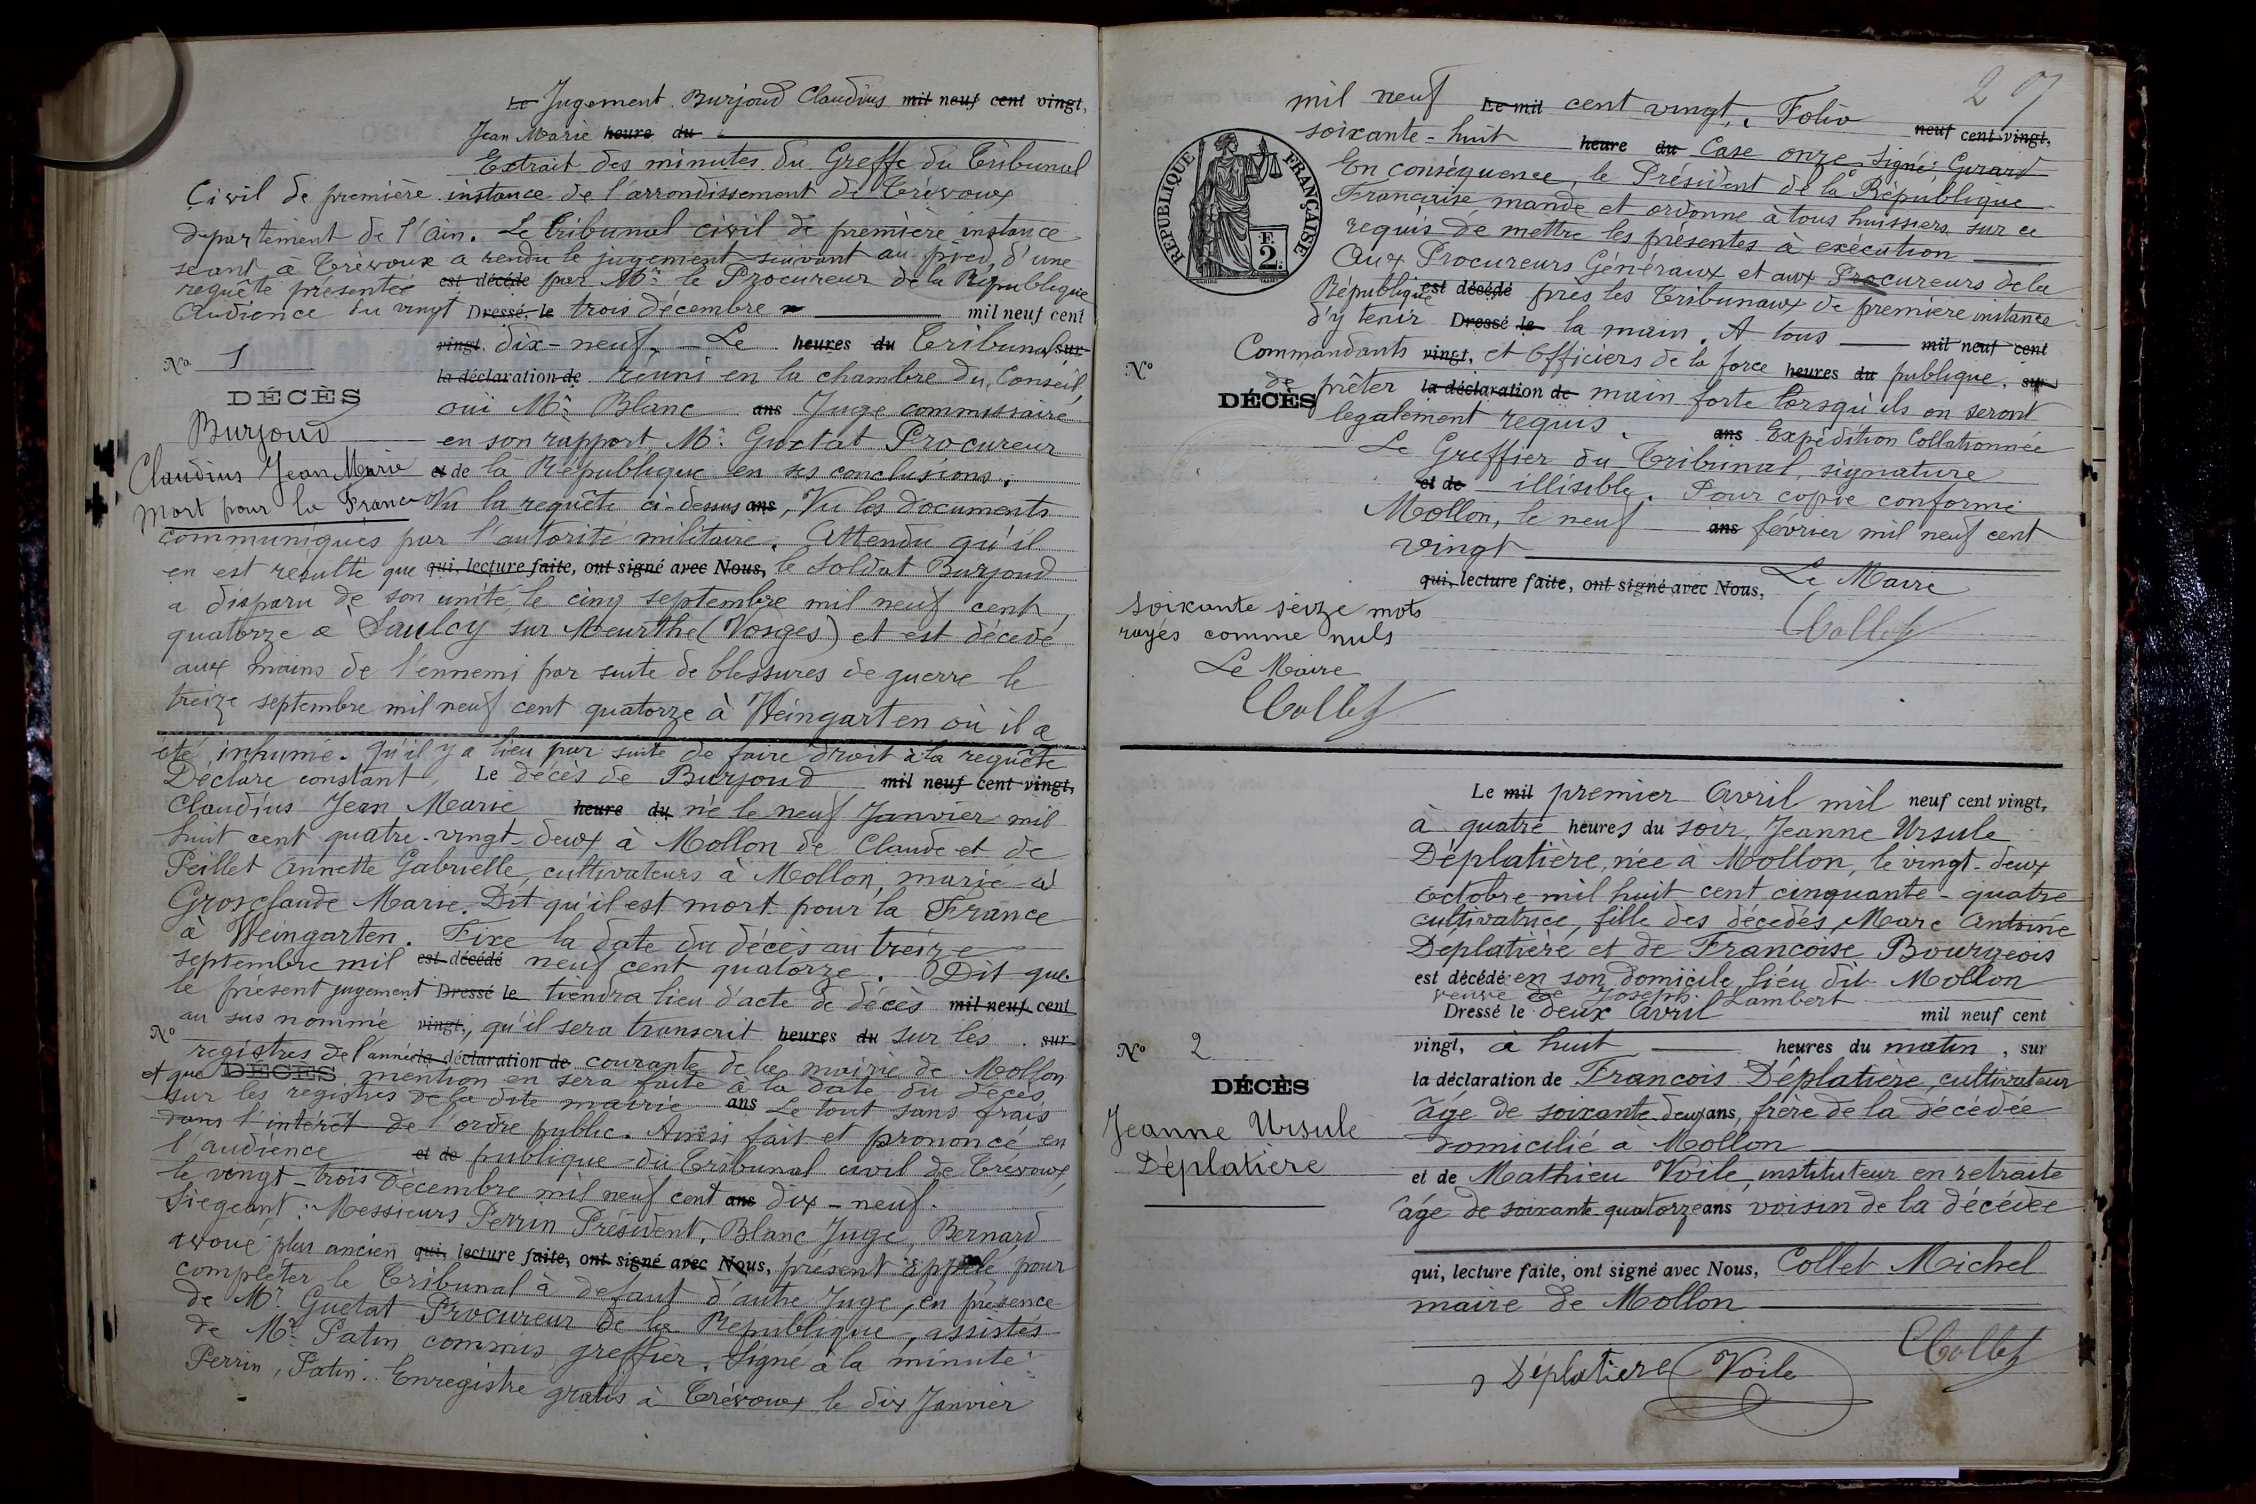 Le Jugement Burjoud Claudius mil neuf cent vingt,
Jean Marie heure du
Extrait des minutes du Greffe du Tribunal
Civil de première instance de l'arrondissement de Trévoux
département de l'Ain. Le Tribunal civil de première instance
séant à Trévoux a rendu le jugement suivant au pied d'une
requête présentée est décédé par Mr le Procureur de la République
Audience du vingt Dressé le trois décembre mil neuf cent
vingt dix-neuf. Le heures du Tribunal sur
la déclaration de réuni en la chambre du Conseil,
ouï Mr Blanc ans Juge commissaire
en son rapport Mr Guetat Procureur
et de la République en ses conclusions.
Vu la requête ci-dessus ans, Vu les documents
communiqués par l'autorité militaire. Attendu qu'il
en est résulté que qui, lecture faite, ont signé avec Nous, le soldat Burjoud
a disparu de son unité, le cinq septembre mil neuf cent
quatorze à Saulcy sur Meurthe (Vosges) et est décédé
aux mains de l'ennemi par suite de blessures de guerre le
treize septembre mil neuf cent quatorze à Weingarten où il a
été inhumé. Qu'il y a lieu par suite de faire droit à la requête
Déclare constant Le décès de Burjoud mil neuf cent vingt,
Claudius Jean Marie heure du né le neuf Janvier mil
huit cent quatre-vingt-deux à Mollon de Claude et de
Peillet Annette Gabrielle, cultivateurs à Mollon, marié à
Grosclaude Marie. Dit qu'il est mort pour la France
à Weingarten. Fixe la date du décès au treize
septembre mil est décédé neuf cent quatorze. Dit que
le présent jugement Dressé le tiendra lieu d'acte de décès mil neuf cent
au sus nommé vingt, qu'il sera transcrit heures du sur les sur
registres de l'année la déclaration de courante de la mairie de Mollon
et que DÉCÈS mention en sera faite à la date du décès
sur les registres de la dite mairie ans Le tout sans frais
dans l'intérêt de l'ordre public. Ainsi fait et prononcé en
l'audience et de publique du Tribunal civil de Trévoux,
le vingt-trois Décembre mil neuf cent ans dix-neuf.
Siégeant: Messieurs Perrin Président, Blanc Juge, Bernard
avoué plus ancien qui, lecture faite, ont signé avec Nous, présent appelé pour
compléter le Tribunal à défaut d'autre Juge, en présence
de Mr Guetat Procureur de la République, assistés
de Mr Patin commis greffier. Signé à la minute:
Perrin, Patin. Enregistré gratis à Trévoux le dix Janvier
No 1
DÉCÈS
Burjoud
Claudius Jean Marie
Mort pour la France
No
207
mil neuf Le mil cent vingt. Folio neuf cent vingt,
soixante-huit heure du Case onze Signé: Girard
En conséquence, le Président de la République
Française mande et ordonne à tous huissiers sur ce
requis de mettre les présentes à exécution
Aux Procureurs Généraux et aux Procureurs de la
République est décédé près les Tribunaux de première instance
d'y tenir Dressé le la main. A tous mil neuf cent
Commandants vingt, et Officiers de la force heures du publique, sur
de prêter la déclaration de main forte lorsqu'ils en seront
légalement requis. ans Expédition Collationnée
Le Greffier du Tribunal, signature
et de illisible. Pour copie conforme
Mollon, le neuf ans février mil neuf cent
vingt
qui, lecture faite, ont signé avec Nous, Le Maire
Collet
REPUBLIQUE FRANÇAISE
F.
2.
No
DÉCÈS
Soixante seize mots
rayés comme nuls
Le Maire
Collet
Le mil premier Avril mil neuf cent vingt,
à quatre heures du soir, Jeanne Ursule
Déplatière, née à Mollon, le vingt-deux
octobre mil huit cent cinquante-quatre
cultivatrice, fille des décédés Marc Antoine
Déplatière et de Françoise Bourgeois
est décédé en son domicile lieu dit Mollon
veuve de Joseph Lambert
Dressé le deux Avril mil neuf cent
vingt, à huit heures du matin, sur
la déclaration de Francois Déplatière, cultivateur
âgé de soixante deux ans, frère de la décédée
domicilié à Mollon
et de Mathieu Voile, instituteur en retraite
âgé de soixante quatorze ans voisin de la décédée
qui, lecture faite, ont signé avec Nous, Collet Michel
maire de Mollon
Déplatiere Voile Collet
No 2
DÉCÈS
Jeanne Ursule
Déplatière